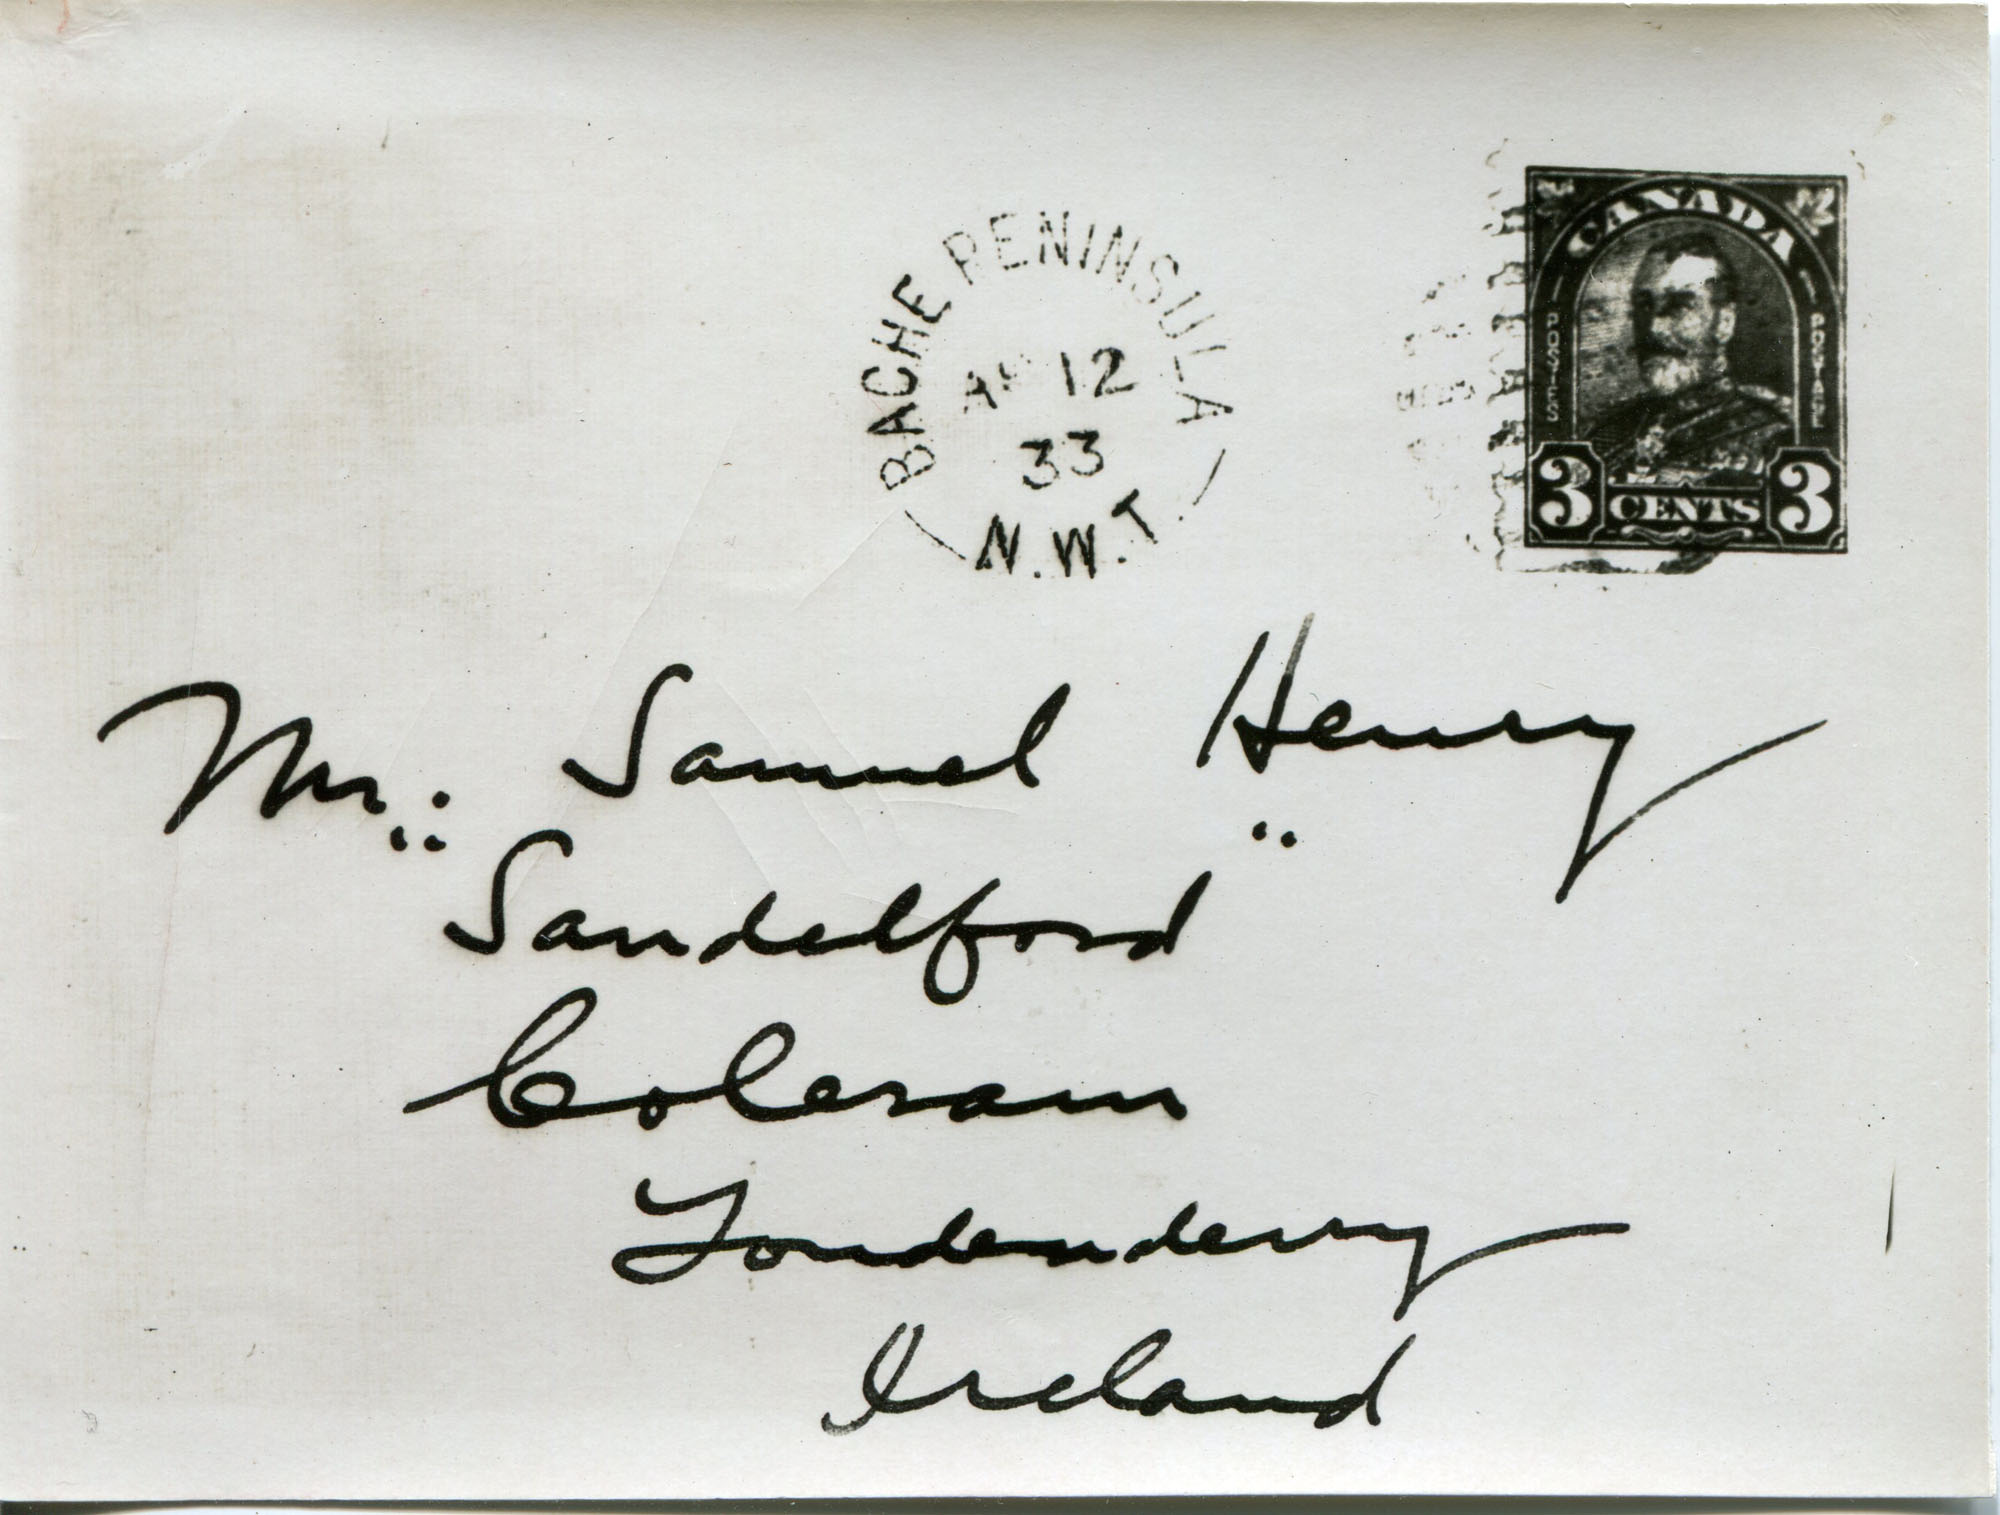 BACHE PENINSULA
AP 12
33
N.W.T.
CANADA
POSTES
POSTAGE
3 CENTS 3
Mr. Samuel Henry
"Sandelford"
Colerain
Londonderry
Ireland